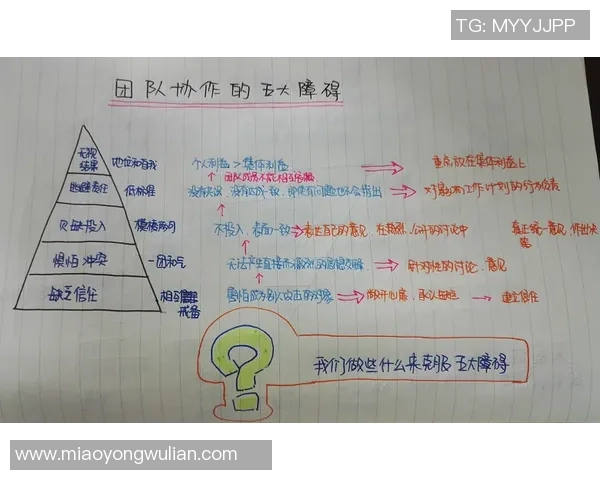 TG: MYYJJPP
团队协作的五大障碍
无视结果 地位和自我 个人利益 > 集体利益 重点放在集体利益上
逃避责任 低标准 没有达成一致,即使有问题也不会指出 对影响工作计划的行为负责
欠缺投入 模棱两可 不投入,表面一致 表达自己的意见,在激烈、公开的讨论中 真正统一意见,作出决策
惧怕冲突 一团和气 无法产生直接而激烈的思想交锋 针对性的讨论、意见
缺乏信任 相互戒备 害怕成为别人攻击的对象 敞开心扉,承认 建立信任
我们做些什么来克服五大障碍
www.miaoyongwulian.com